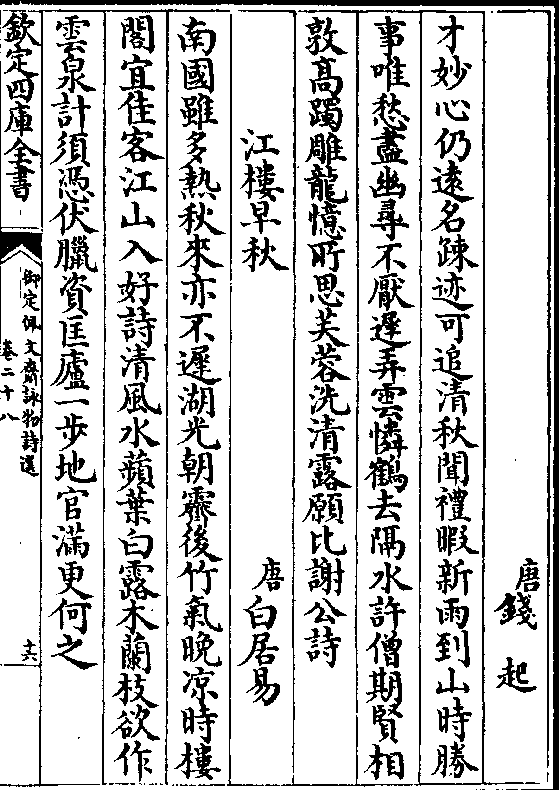 唐錢起
才妙心仍遠名疎迹可追清秋聞禮暇新雨到山時勝
事唯愁盡幽尋不厭遲弄雲憐鶴去隔水許僧期賢相
敦高躅雕龍憶所思芙蓉洗清露願比謝公詩
江樓早秋
唐白居易
南國雖多熱秋來亦不遲湖光朝霽後竹氣晚凉時樓
閣宜佳客江山入好詩清風水蘋葉白露木蘭枝欲作
雲泉計須憑伏臘資匡廬一步地官滿更何之
欽定四庫全書
御定佩文齋詠物詩選
卷二十八
十六